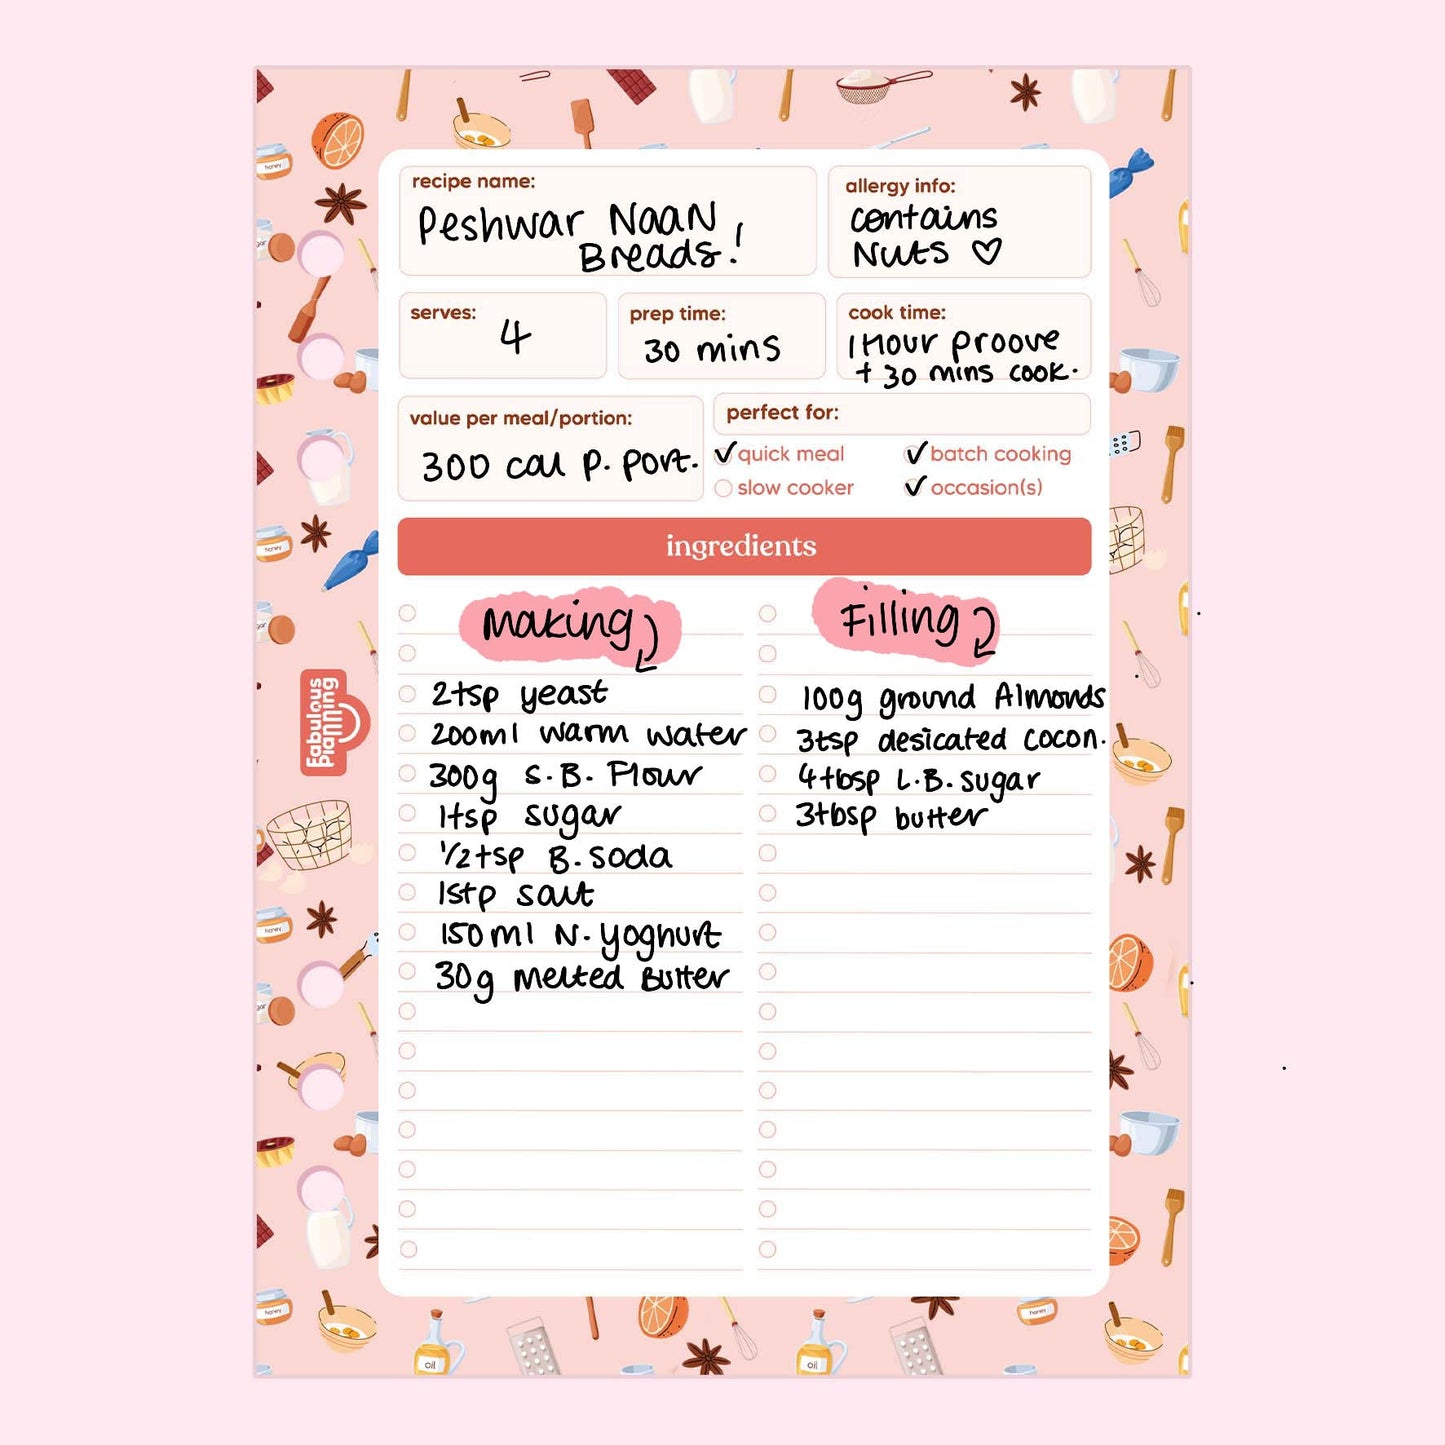 recipe name:
Peshwar Naan
Breads!
allergy info:
contains
Nuts ♡
serves:
4
prep time:
30 mins
cook time:
1 Hour Proove
+ 30 mins cook.
value per meal/portion:
300 cal p. port.
perfect for:
✓ quick meal
✓ batch cooking
slow cooker
✓ occasion(s)
ingredients
Making
2tsp yeast
200ml warm water
300g S.B. Flour
1tsp sugar
1/2tsp B. soda
1stp salt
150ml N. yoghurt
30g Melted Butter
Filling
100g ground Almonds
3tsp desicated cocon.
4tbsp L.B. sugar
3tbsp butter
Fabulous
Planning
honey
honey
honey
honey
honey
oil
oil